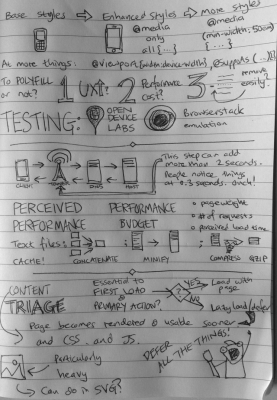 Base styles Enhanced styles More styles
@media only all { ... }
@media (min-width: 50em) { ... }
As more things: @viewport {width: device-width} @supports (...) {...}
To POLYFILL or not? 1 UX? 2 Performance cost? 3 remove easily?
TESTING: OPEN DEVICE LABS Browserstack emulation
This step can add more than 2 seconds.
People notice things at 0.3 seconds. Ouch!
CLICK! DNS HOST
PERCEIVED PERFORMANCE
PERFORMANCE BUDGET
page weight
# of requests
perceived load time
Text files:
CACHE! CONCATENATE MINIFY COMPRESS GZIP
CONTENT TRIAGE
Essential to FIRST LOAD & PRIMARY ACTION?
YES Load with page
NO Lazy load/defer
Page becomes rendered & usable sooner
and CSS. and JS.
DEFER ALL THE THINGS!
Particularly heavy
Can do in SVG?